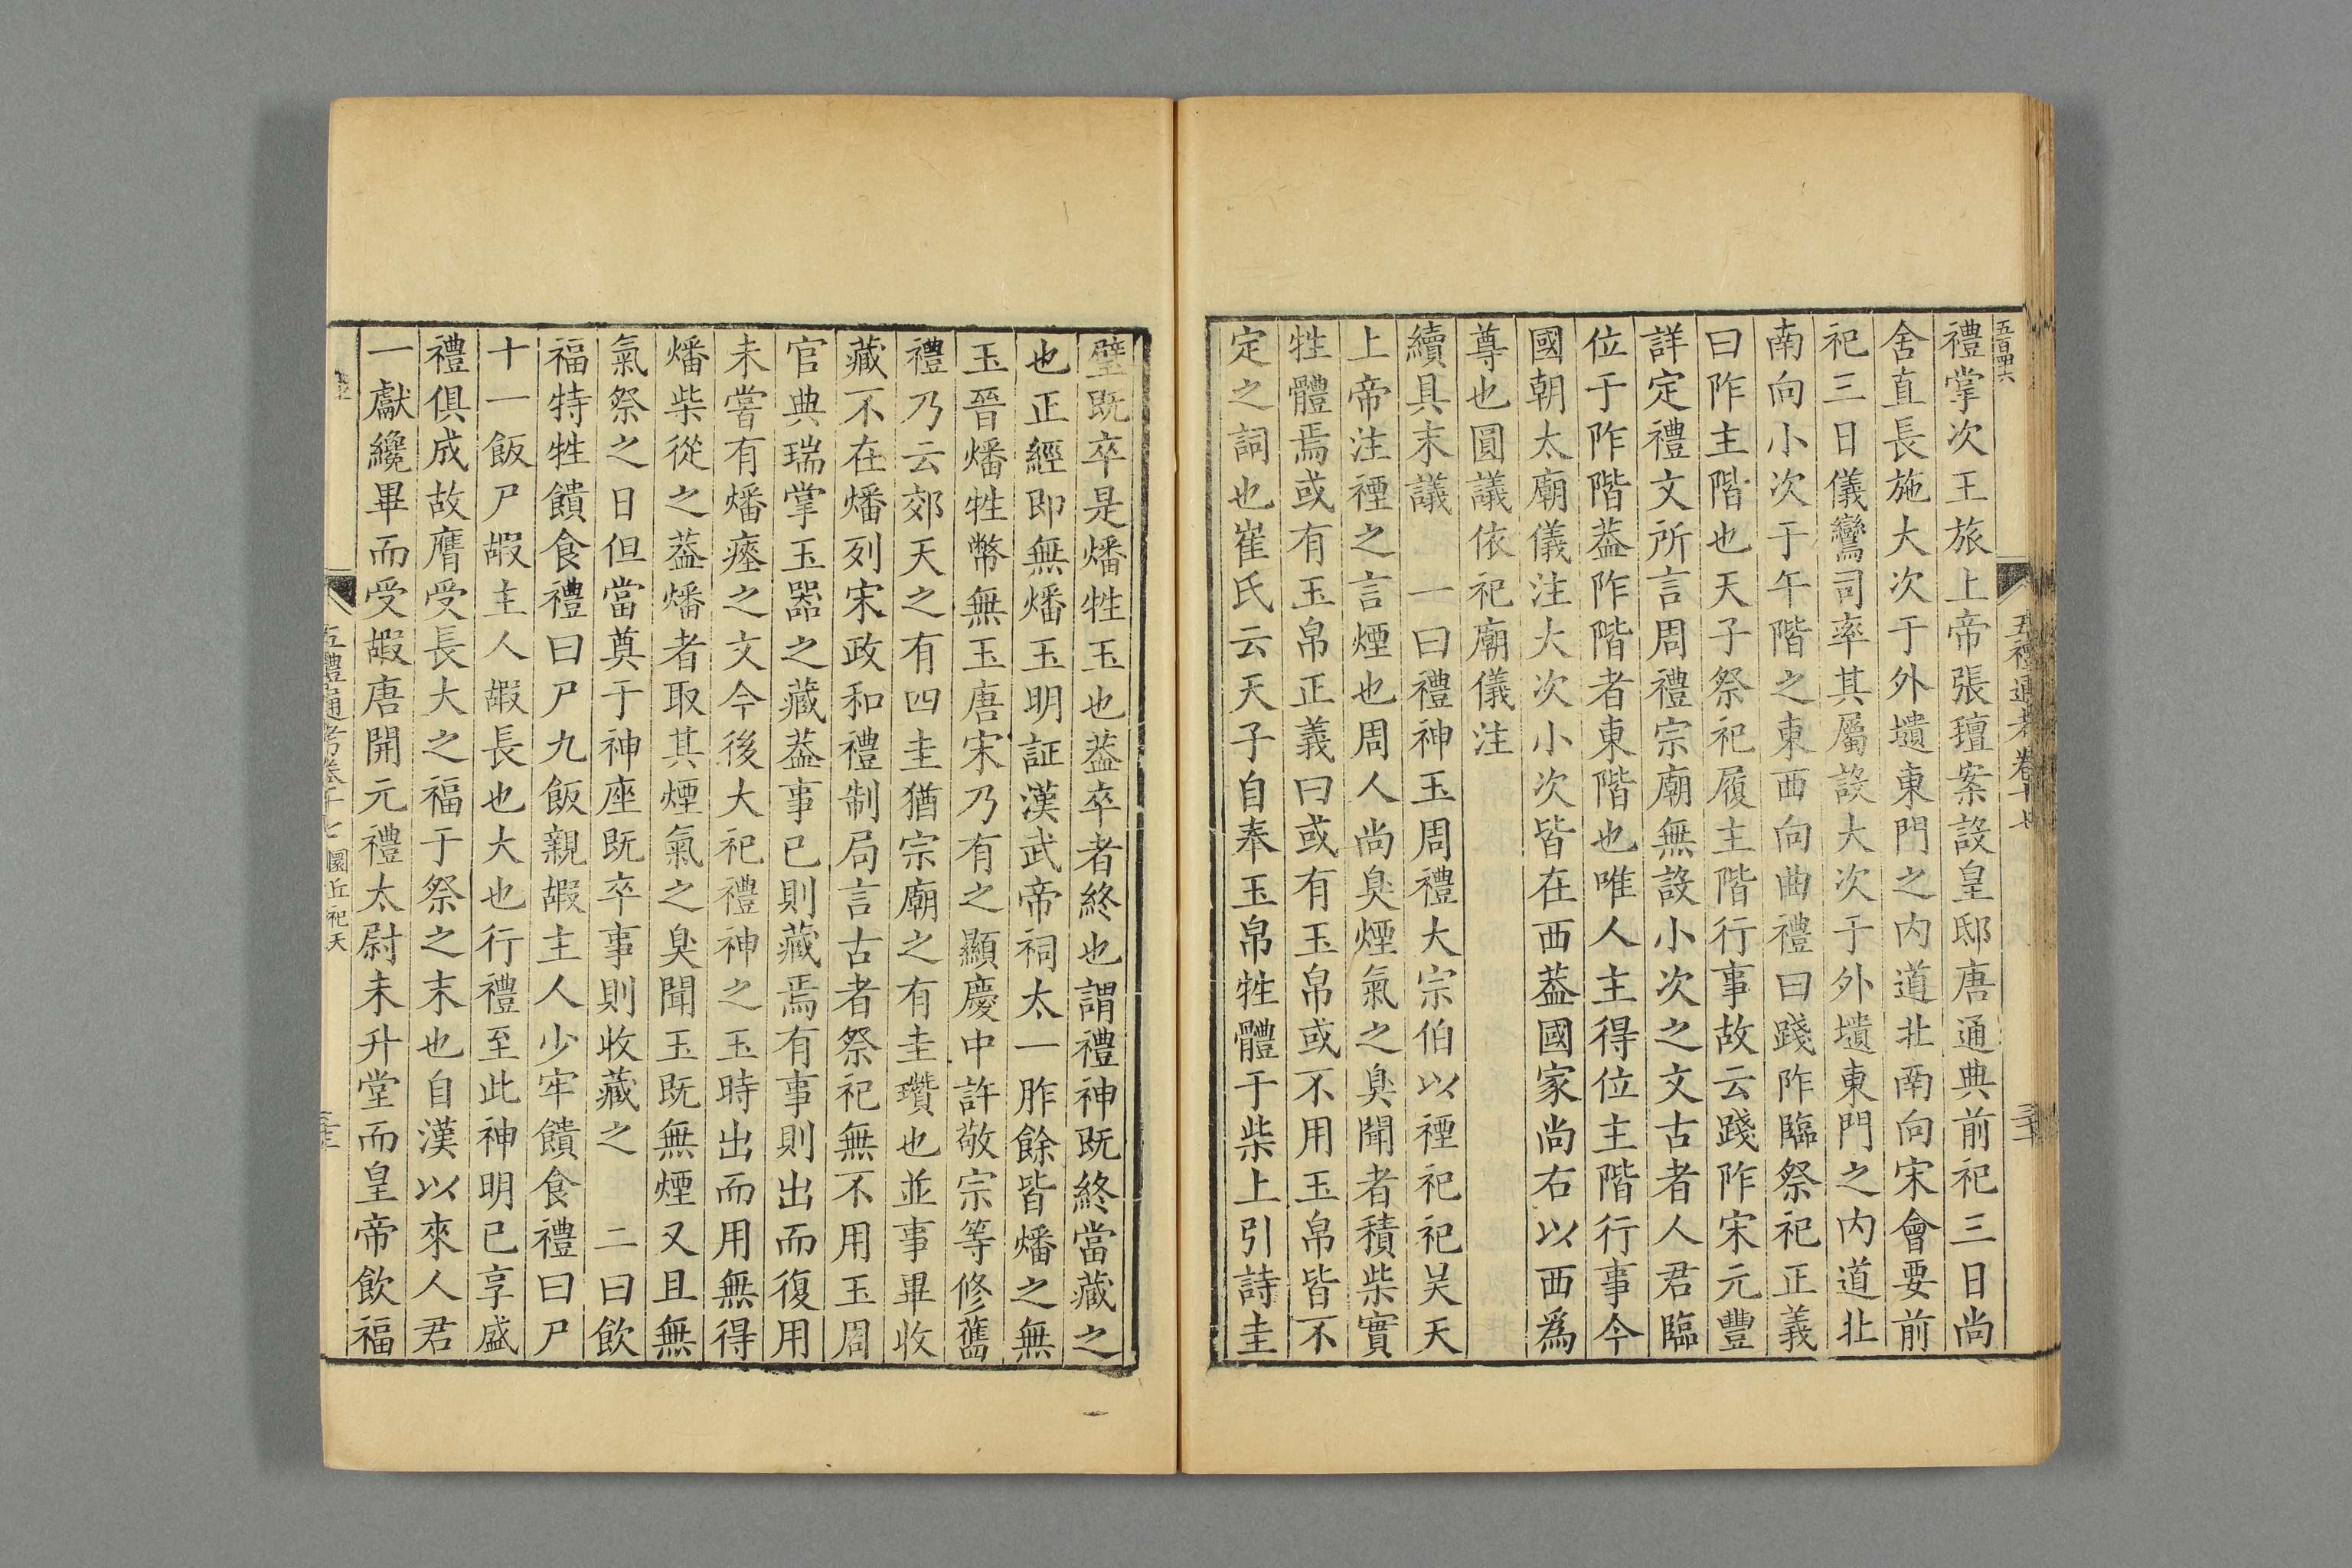 五百四六
五禮通考卷十七
三十
禮掌次王旅上帝張氊案設皇邸唐通典前祀三日尚
舍直長施大次于外壝東門之內道北南向宋會要前
祀三日儀鸞司率其屬設大次于外壝東門之內道北
南向小次于午階之東西向曲禮曰踐阼臨祭祀正義
曰阼主階也天子祭祀履主階行事故云踐阼宋元豐
詳定禮文所言周禮宗廟無設小次之文古者人君臨
位于阼階葢阼階者東階也唯人主得位主階行事今
國朝太廟儀注大次小次皆在西葢國家尚右以西爲
尊也圓議依祀廟儀注
續具末議　一曰禮神玉周禮大宗伯以禋祀祀昊天
上帝注禋之言煙也周人尚臭煙氣之臭聞者積柴實
牲體焉或有玉帛正義曰或有玉帛或不用玉帛皆不
定之詞也崔氏云天子自奉玉帛牲體于柴上引詩圭
璧既卒是燔牲玉也葢卒者終也謂禮神既終當藏之
也正經即無燔玉明証漢武帝祠太一胙餘皆燔之無
玉晉燔牲幣無玉唐宋乃有之顯慶中許敬宗等修舊
禮乃云郊天之有四圭猶宗廟之有圭瓚也並事畢收
藏不在燔列宋政和禮制局言古者祭祀無不用玉周
官典瑞掌玉器之藏葢事已則藏焉有事則出而復用
未嘗有燔瘞之文今後大祀禮神之玉時出而用無得
燔柴從之葢燔者取其煙氣之臭聞玉既無煙又且無
氣祭之日但當奠于神座既卒事則收藏之　二曰飲
福特牲饋食禮曰尸九飯親嘏主人少牢饋食禮曰尸
十一飯尸嘏主人嘏長也大也行禮至此神明已享盛
禮俱成故膺受長大之福于祭之末也自漢以來人君
一獻纔畢而受嘏唐開元禮太尉未升堂而皇帝飲福
五禮通考卷十七　圜丘祀天